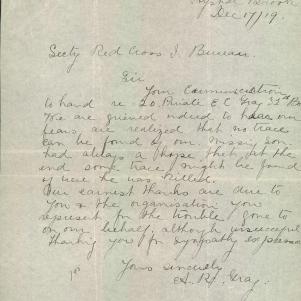 Crystal Brook
Dec 17/19.
Secty Red Cross I. Bureau.
Sir
Your Communication
to hand re Private E C Gray 32nd
We are grieved indeed to hear our
fears are realized that no trace
can be found of our missing son
had always a hope that at the
end some trace might be found
of where he was killed.
Our earnest thanks are due to
you & the organisation you
represent for the trouble gone to
on our behalf, although unsuccessful
Thanking you for sympathy expressed
Yours sincerely
Gray.